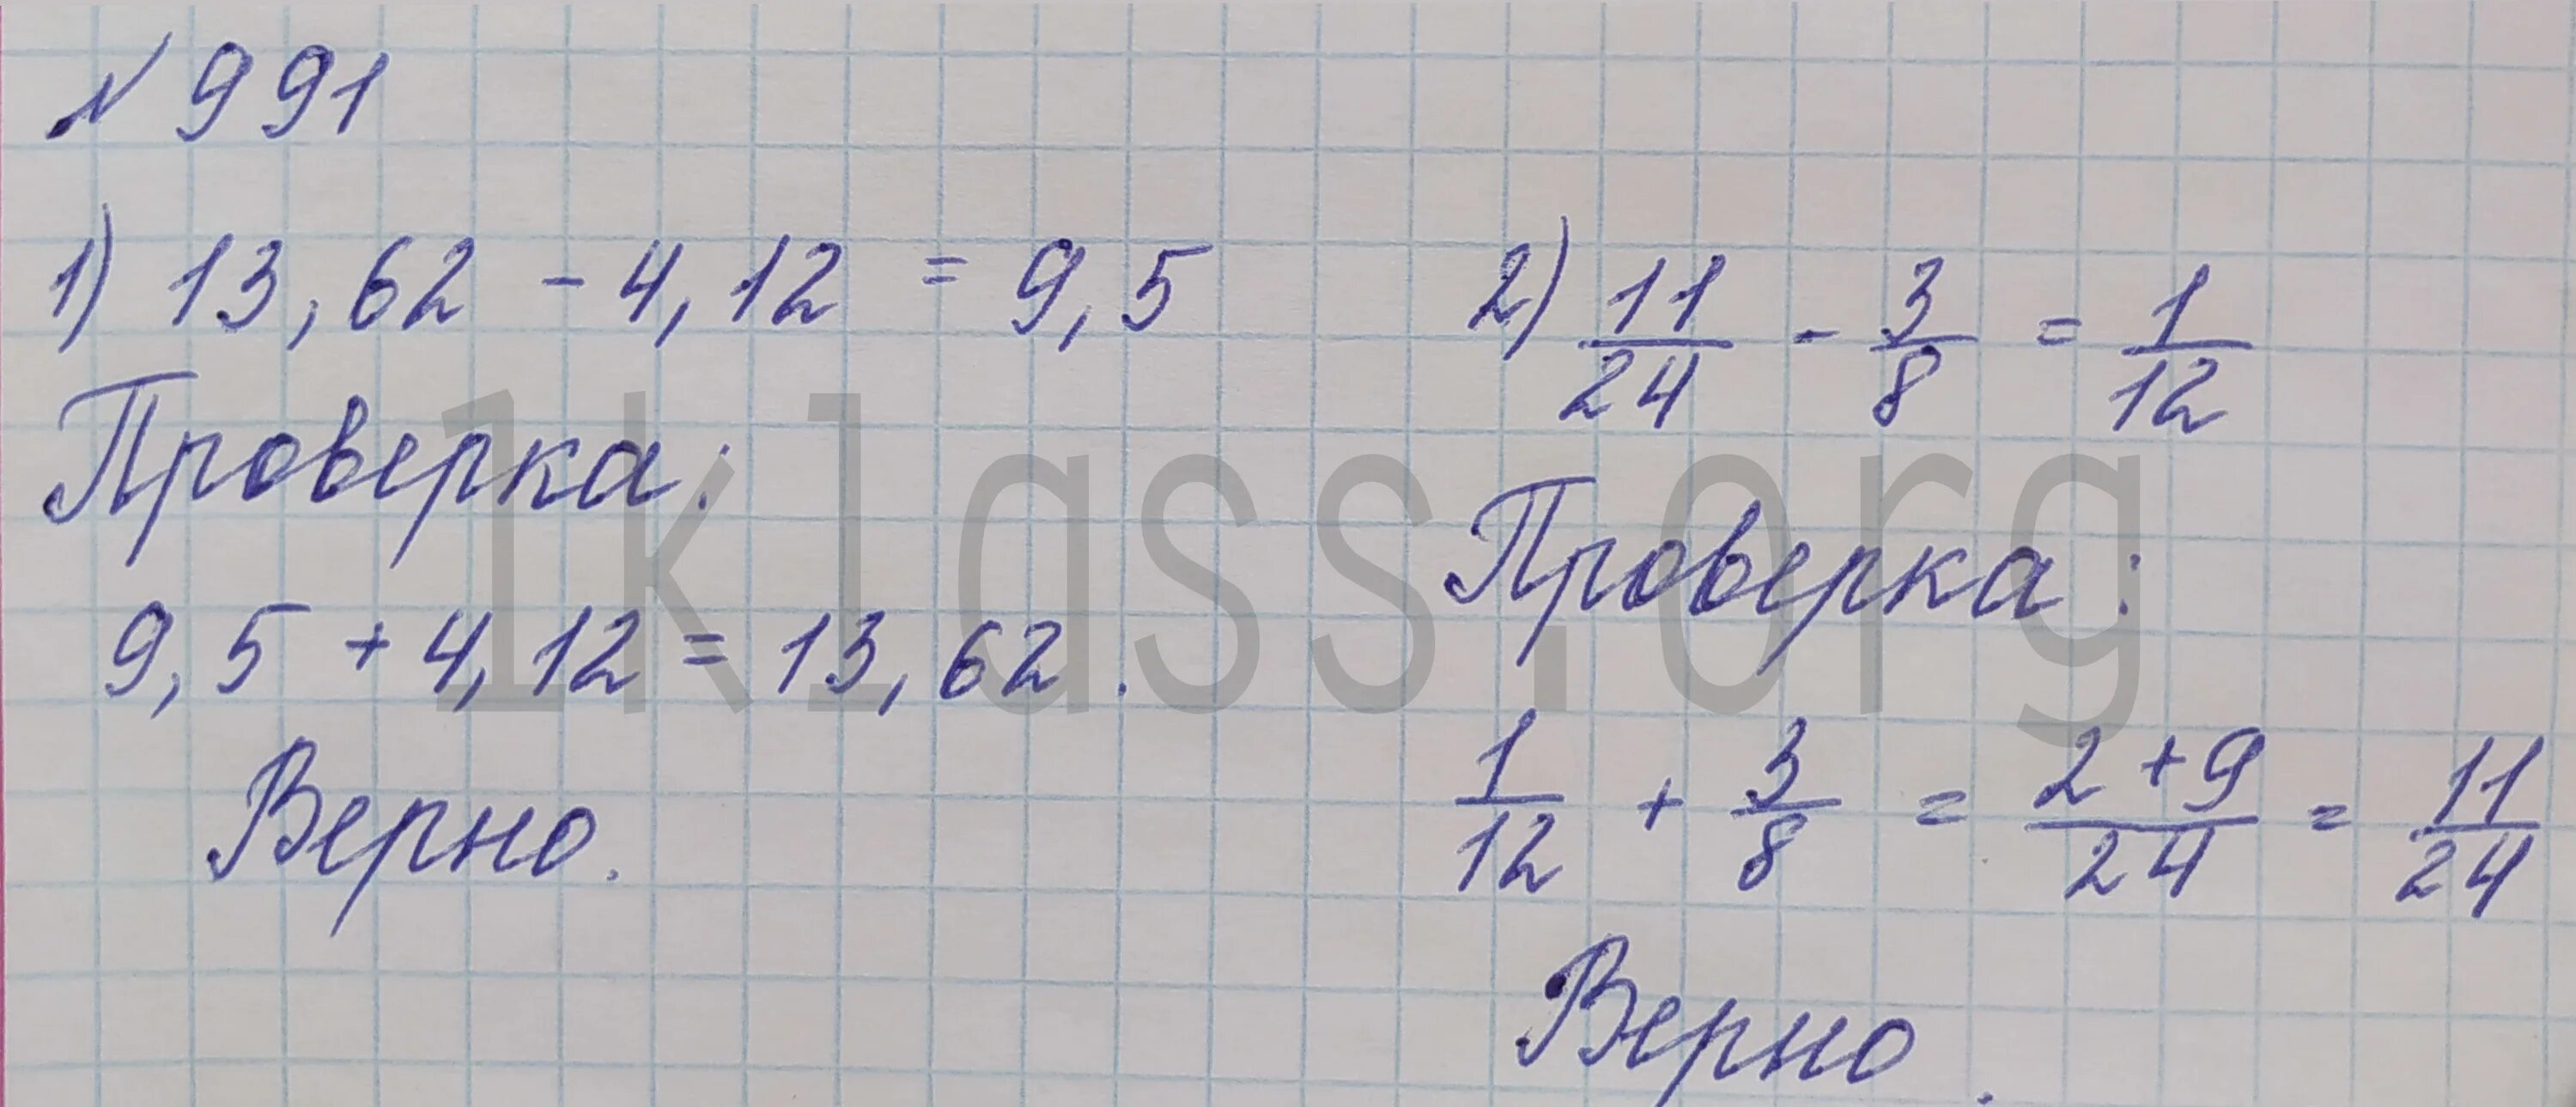 № 991
1) 13,62 - 4,12 = 9,5
Проверка:
9,5 + 4,12 = 13,62.
Верно.
2) 11/24 - 3/8 = 1/12
Проверка:
1/12 + 3/8 = 2+9/24 = 11/24
Верно.
1klass.org